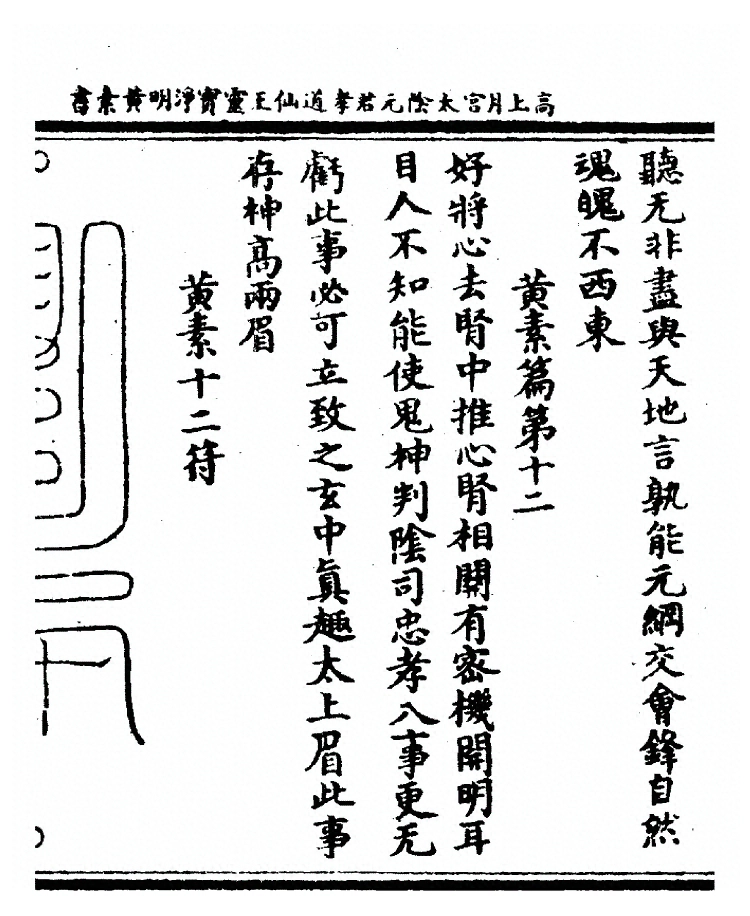 高上月宮太陰元君孝道仙王靈寶淨明黃素書
聽无非盡與天地言孰能元綱交會鋒自然
魂魄不西東
黃素篇第十二
好將心去腎中推心腎相關有密機開明耳
目人不知能使鬼神判陰司忠孝八事更无
虧此事必可立致之玄中眞趣太上眉此事
存神高兩眉
黃素十二符